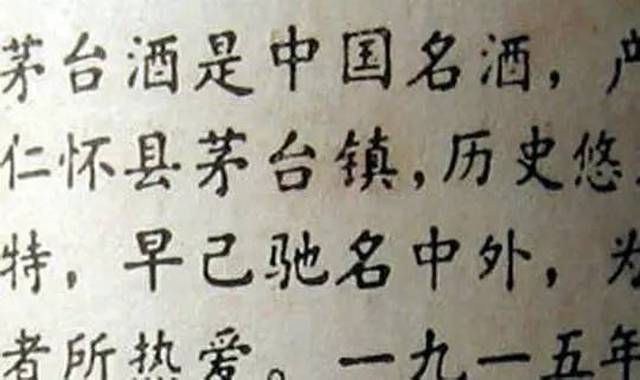 茅台酒是中国名酒，产
仁怀县茅台镇，历史悠
特，早已驰名中外，为
者所热爱。一九一五年